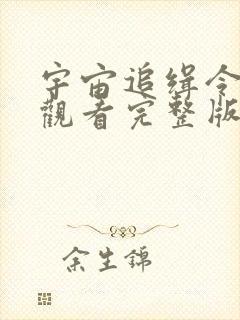 宇宙追缉令
觀看完整版
余生錦